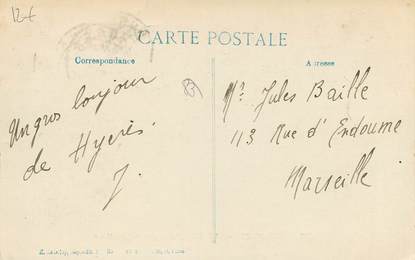 12€
CARTE POSTALE
Correspondance
Adresse
Un gros bonjour
de Hyères.
J.
Mr. Jules Baille
113 Rue d'Endoume
Marseille